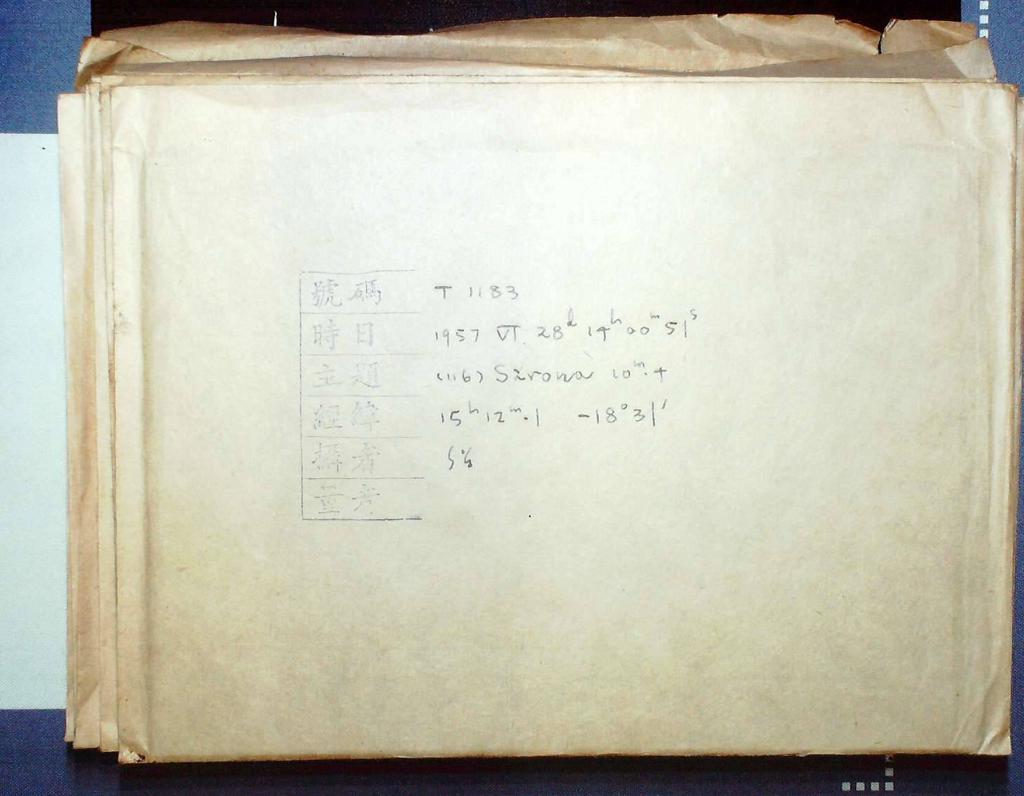 號碼 T 1183
時日 1957 VI. 28ᵈ 14ʰ 00ᵐ 51ˢ
主題 (116) Sirona 10ᵐ.4
經緯 15ʰ 12ᵐ.1 -18°31'
攝者
量者